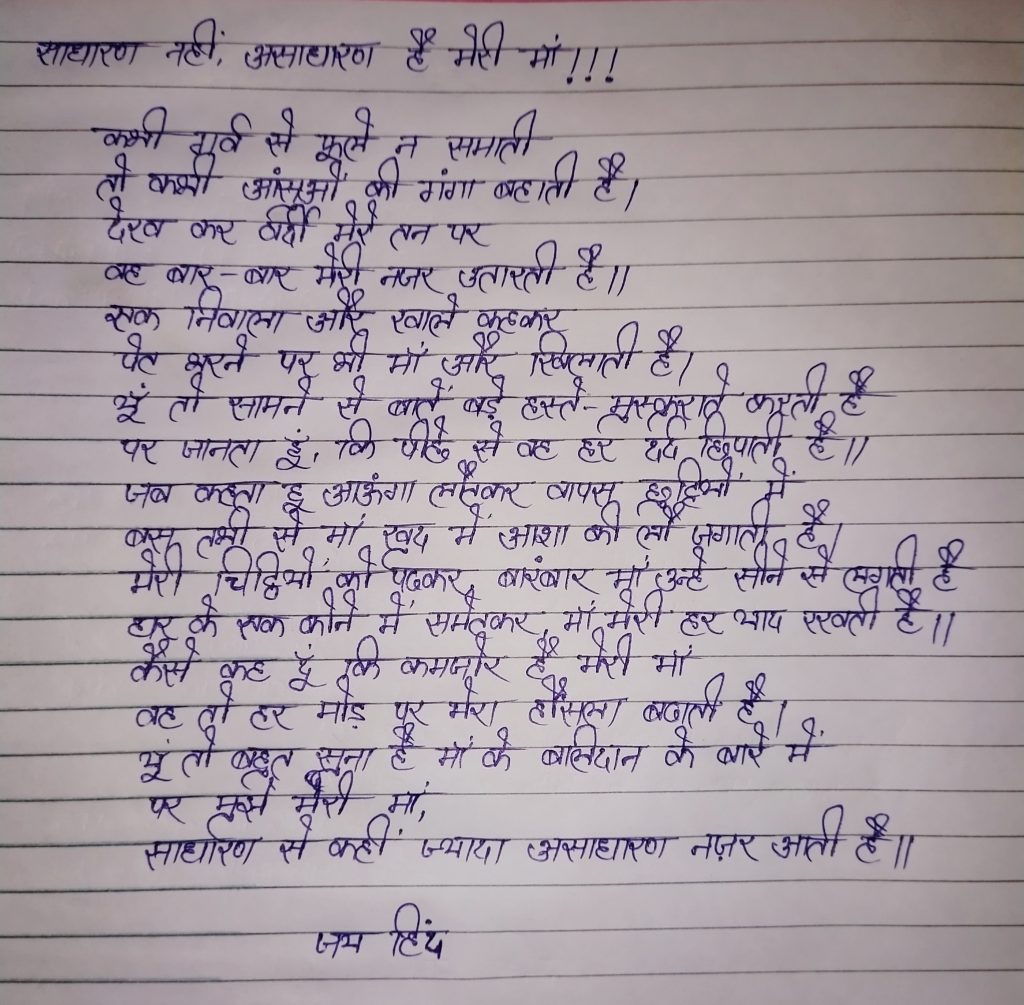 साधारण नहीं, असाधारण है मेरी मां!!!
कभी गर्व से फूले न समाती
तो कभी आंसूओं की गंगा बहाती है।
देख कर वर्दी मेरे तन पर
वह बार-बार मेरी नजर उतारती है॥
एक निवाला और खाले कहकर
पेट भरने पर भी मां और खिलाती है।
यूं तो सामने से बातें बड़े हस्ते-मुस्कुराते करती है
पर जानता हूं, कि पीछे से वह हर दर्द छिपाती है॥
जब कहता हू आऊंगा लौटकर वापस छुट्टियों में
बस तभी से मां खुद में आशा की लौ जगाती है।
मेरी चिट्ठियों को पढकर, बारंबार मां उन्हे सीने से लगाती है
घर के एक कोने में समेटकर, मां मेरी हर याद रखती है॥
कैसे कह दूं कि कमजोर है मेरी मां
वह तो हर मोड़ पर मेरा हौंसला बढाती है।
यूं तो बहुत सुना है मां के बलिदान के बारे में
पर मुझे मेरी मां,
साधारण से कहीं ज्यादा असाधारण नज़र आती है॥
जय हिंद